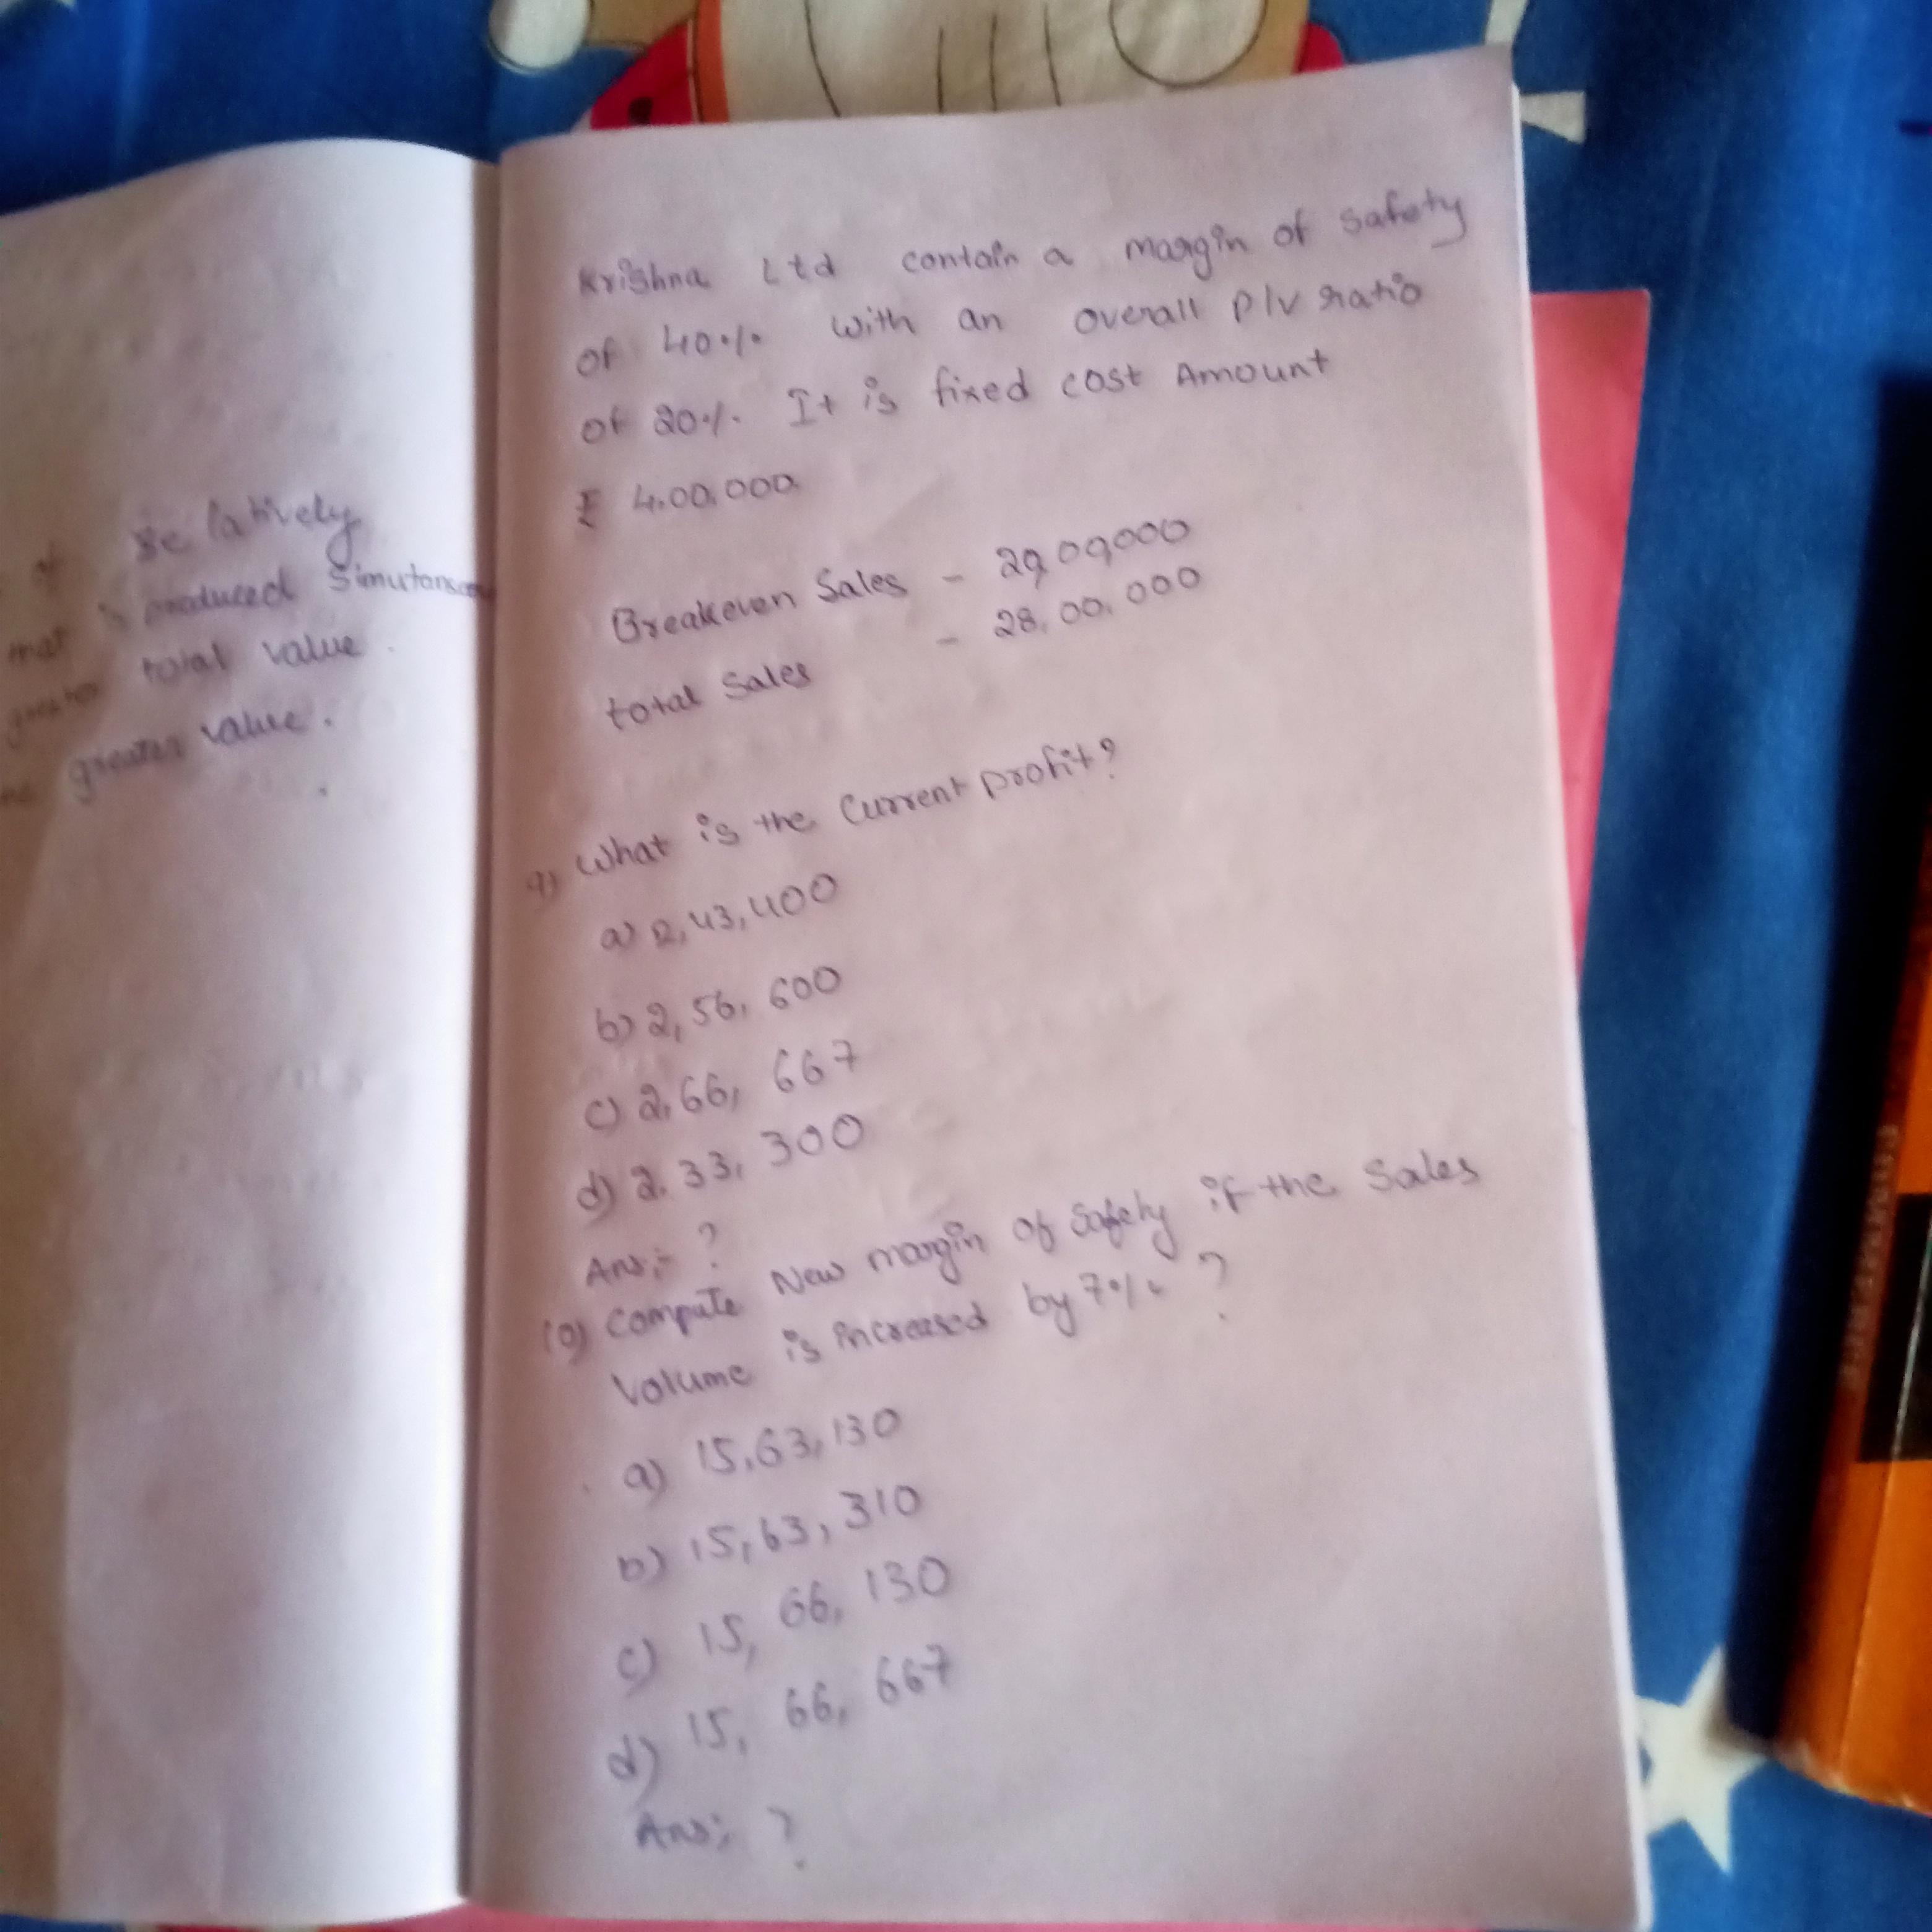 of relatively
that is produced simutaneou
greater total value.
greater value.
Krishna Ltd contain a margin of safety
of 40% with an overall P/V ratio
of 20%. It is fixed cost Amount
₹ 4,00,000.
Breakeven Sales - 20,00,000
total Sales - 28,00,000
9) What is the Current profit?
a) 2,43,400
b) 2,56,600
c) 2,66,667
d) 2,33,300
Ans:- ?
10) Compute New margin of Safety if the Sales
Volume is increased by 7% ?
a) 15,63,130
b) 15,63,310
c) 15,66,130
d) 15,66,667
Ans:- ?